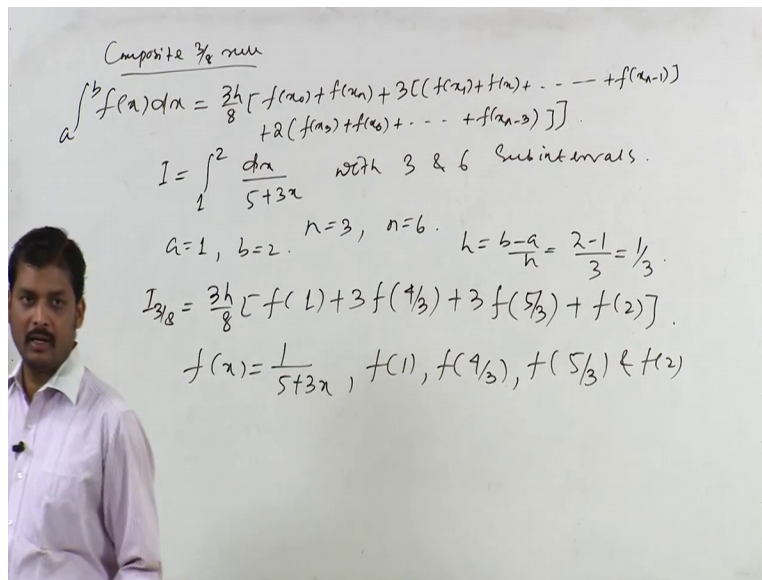 Composite 3/8 rule
a∫b f(x)dx = 3h/8 [f(x0)+f(xn)+3[(f(x1)+f(x)+ . . . --- +f(xn-1)]
+2(f(x3)+f(x6)+ . . . +f(xn-3)]].
I = ∫1^2 dx/5+3x with 3 & 6 Subintervals.
a=1, b=2. n=3, n=6. h = b-a/n = 2-1/3 = 1/3.
I3/8 = 3h/8 [f(1)+3f(4/3)+3f(5/3)+f(2)].
f(x)= 1/5+3x, f(1), f(4/3), f(5/3) & f(2)